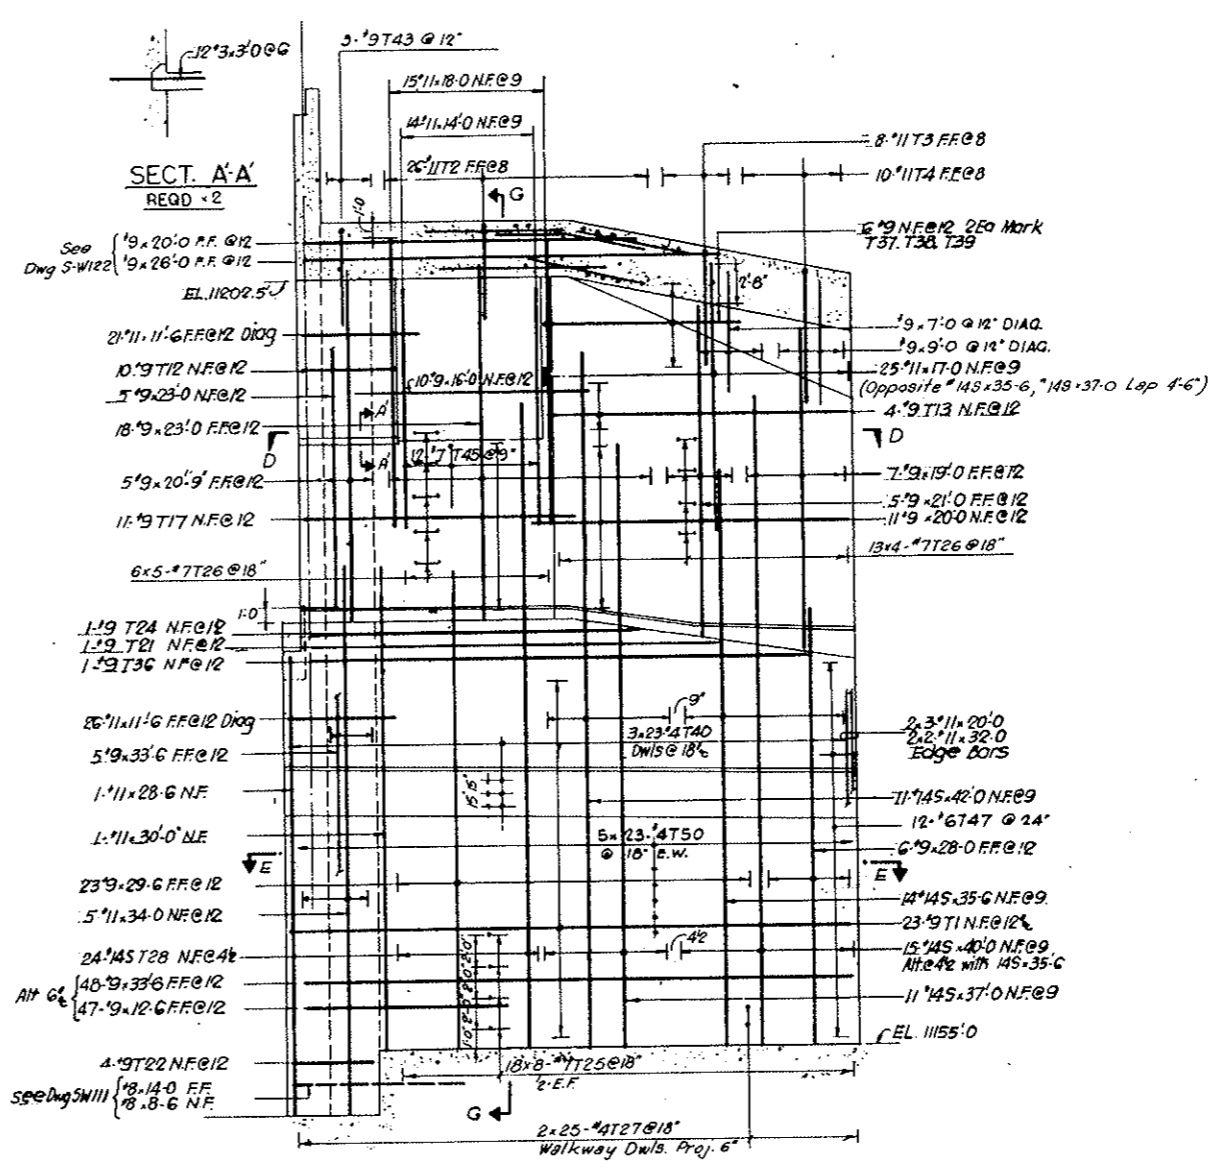 12#3x3'0@6
3-#9T43 @ 12"
15#11x18-0 N.F.@9
14#11x14'-0 N.F.@9
26#11T2 F.F.@8
8-#11T3 F.F.@8
10-#11T4 F.F.@8
SECT. A'-A'
REQD x2
G
1'-0
6 #9 N.F.@12 2Ea Mark
T37, T38, T39
See
Dwg S-W122
#9x20'-0 F.F. @12
#9x26'-0 F.F. @12
EL.11202.5'
2'-8"
21-#11x11-6 F.F.@12 Diag
#9x7'-0 @ 12" DIAG.
#9x9'-0 @ 12" DIAG.
10-#9T12 N.F.@12
10-9x16-0 N.F.@12
25-#11x17-0 N.F.@9
(Opposite #14Sx35-6, #14Sx37-0 Lap 4'-6")
5-#9x23-0 N.F.@12
A'
4-#9T13 N.F.@12
18-#9x23'-0 F.F.@12
D
D
A'
12-#7 T45@9"
5-#9x20'-9" F.F.@12
7-#9x19'-0 F.F.@12
5-#9x21'-0 F.F.@12
11-#9 T17 N.F.@12
11#9 x20-0 N.F.@12
13x4-#7T26@18"
6x5-#7T26@18"
1'-0
1-#9 T24 N.F.@12
1-#9 T21 N.F.@12
1-#9 T36 N.F.@12
26-#11x11-6 F.F.@12 Diag
9"
3x23-#4T40
Dwls @ 18"
2x3-#11x20'-0
2x2-#11x32-0
Edge Bars
5-#9x33-6 F.F.@12
1-#11x28-6 N.F.
15" 15"
11-#14Sx42-0 N.F.@9
12-#6T47 @ 24"
1-#11x30'-0" N.F.
5x23-#4T50
@ 18" E.W.
6-#9x28-0 F.F.@12
E
E
23#9x29-6 F.F.@12
14#14Sx35-6 N.F.@9
5-#11x34-0 N.F.@12
23-#9T1 N.F.@12
24-#14S T28 N.F.@4½
4½
15-#14Sx40'-0 N.F.@9
Alt.@4½ with 14Sx35-6
Alt 6"
48-#9x33'-6 F.F.@12
47-#9x12-6 F.F.@12
1'-0" 2'-0" 2'-0" 2'-0"
11 #14Sx37'-0 N.F.@9
EL. 11155'-0
4-#9T22 N.F.@12
18x8-#7T25@18"
2-E.F.
see Dwg SW111
#8x14-0 F.F.
#8x8-6 N.F.
G
2x25-#4T27@18"
Walkway Dwls. Proj. 6"